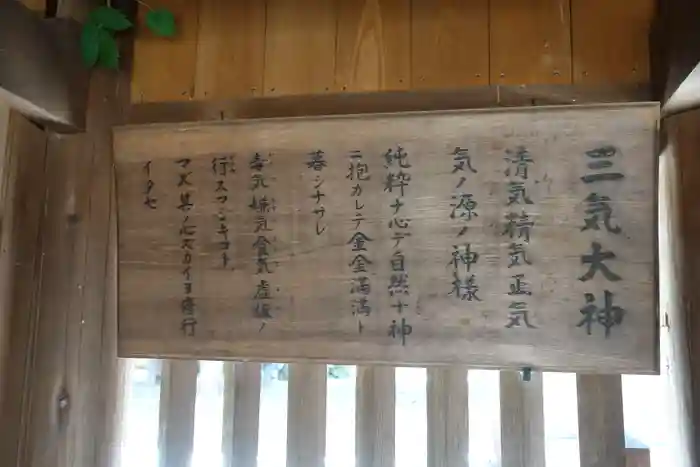 三気大神
清気精気正気
気ノ源ノ神様
純粋ナ心デ自然ト神
ニ抱カレテ金金満満ト
暮シナサレ
気嫌気食気虚仮ノ
行スマジキコト
マズ其ノ心ヌカイヨ修行
イタセ